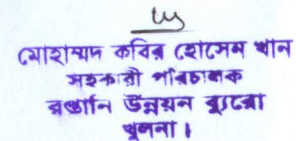 মোহাম্মদ কবির হোসেন খান
সহকারী পরিচালক
রপ্তানি উন্নয়ন ব্যুরো
খুলনা।